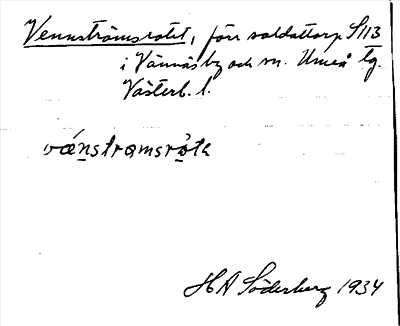 Vennströmsrotet, förr soldattorp S113
i Vännäs by och sn. Umeå tg.
Västerb. l.
vǽnstramsrò̤tə
H A Söderberg 1934